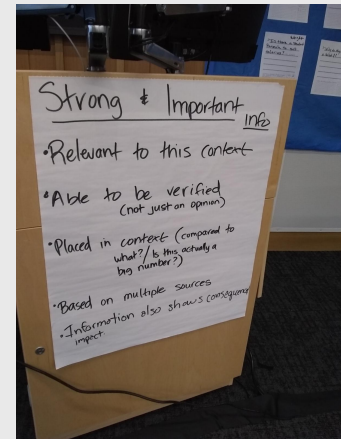 Strong & Important
Info
• Relevant to this context
• Able to be verified
(not just an opinion)
• Placed in context (compared to
what?/ Is this actually a
big number?)
• Based on multiple sources
• Information also shows
impact